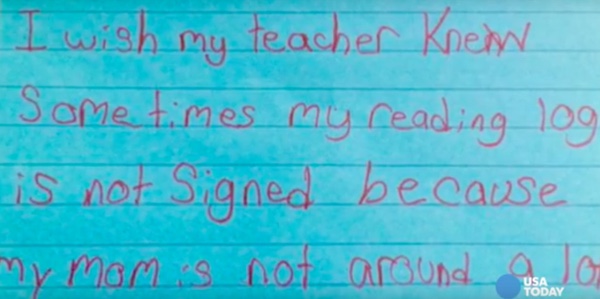 I wish my teacher Knew
Sometimes my reading log
is not Signed because
my mom is not around a
USA
TODAY